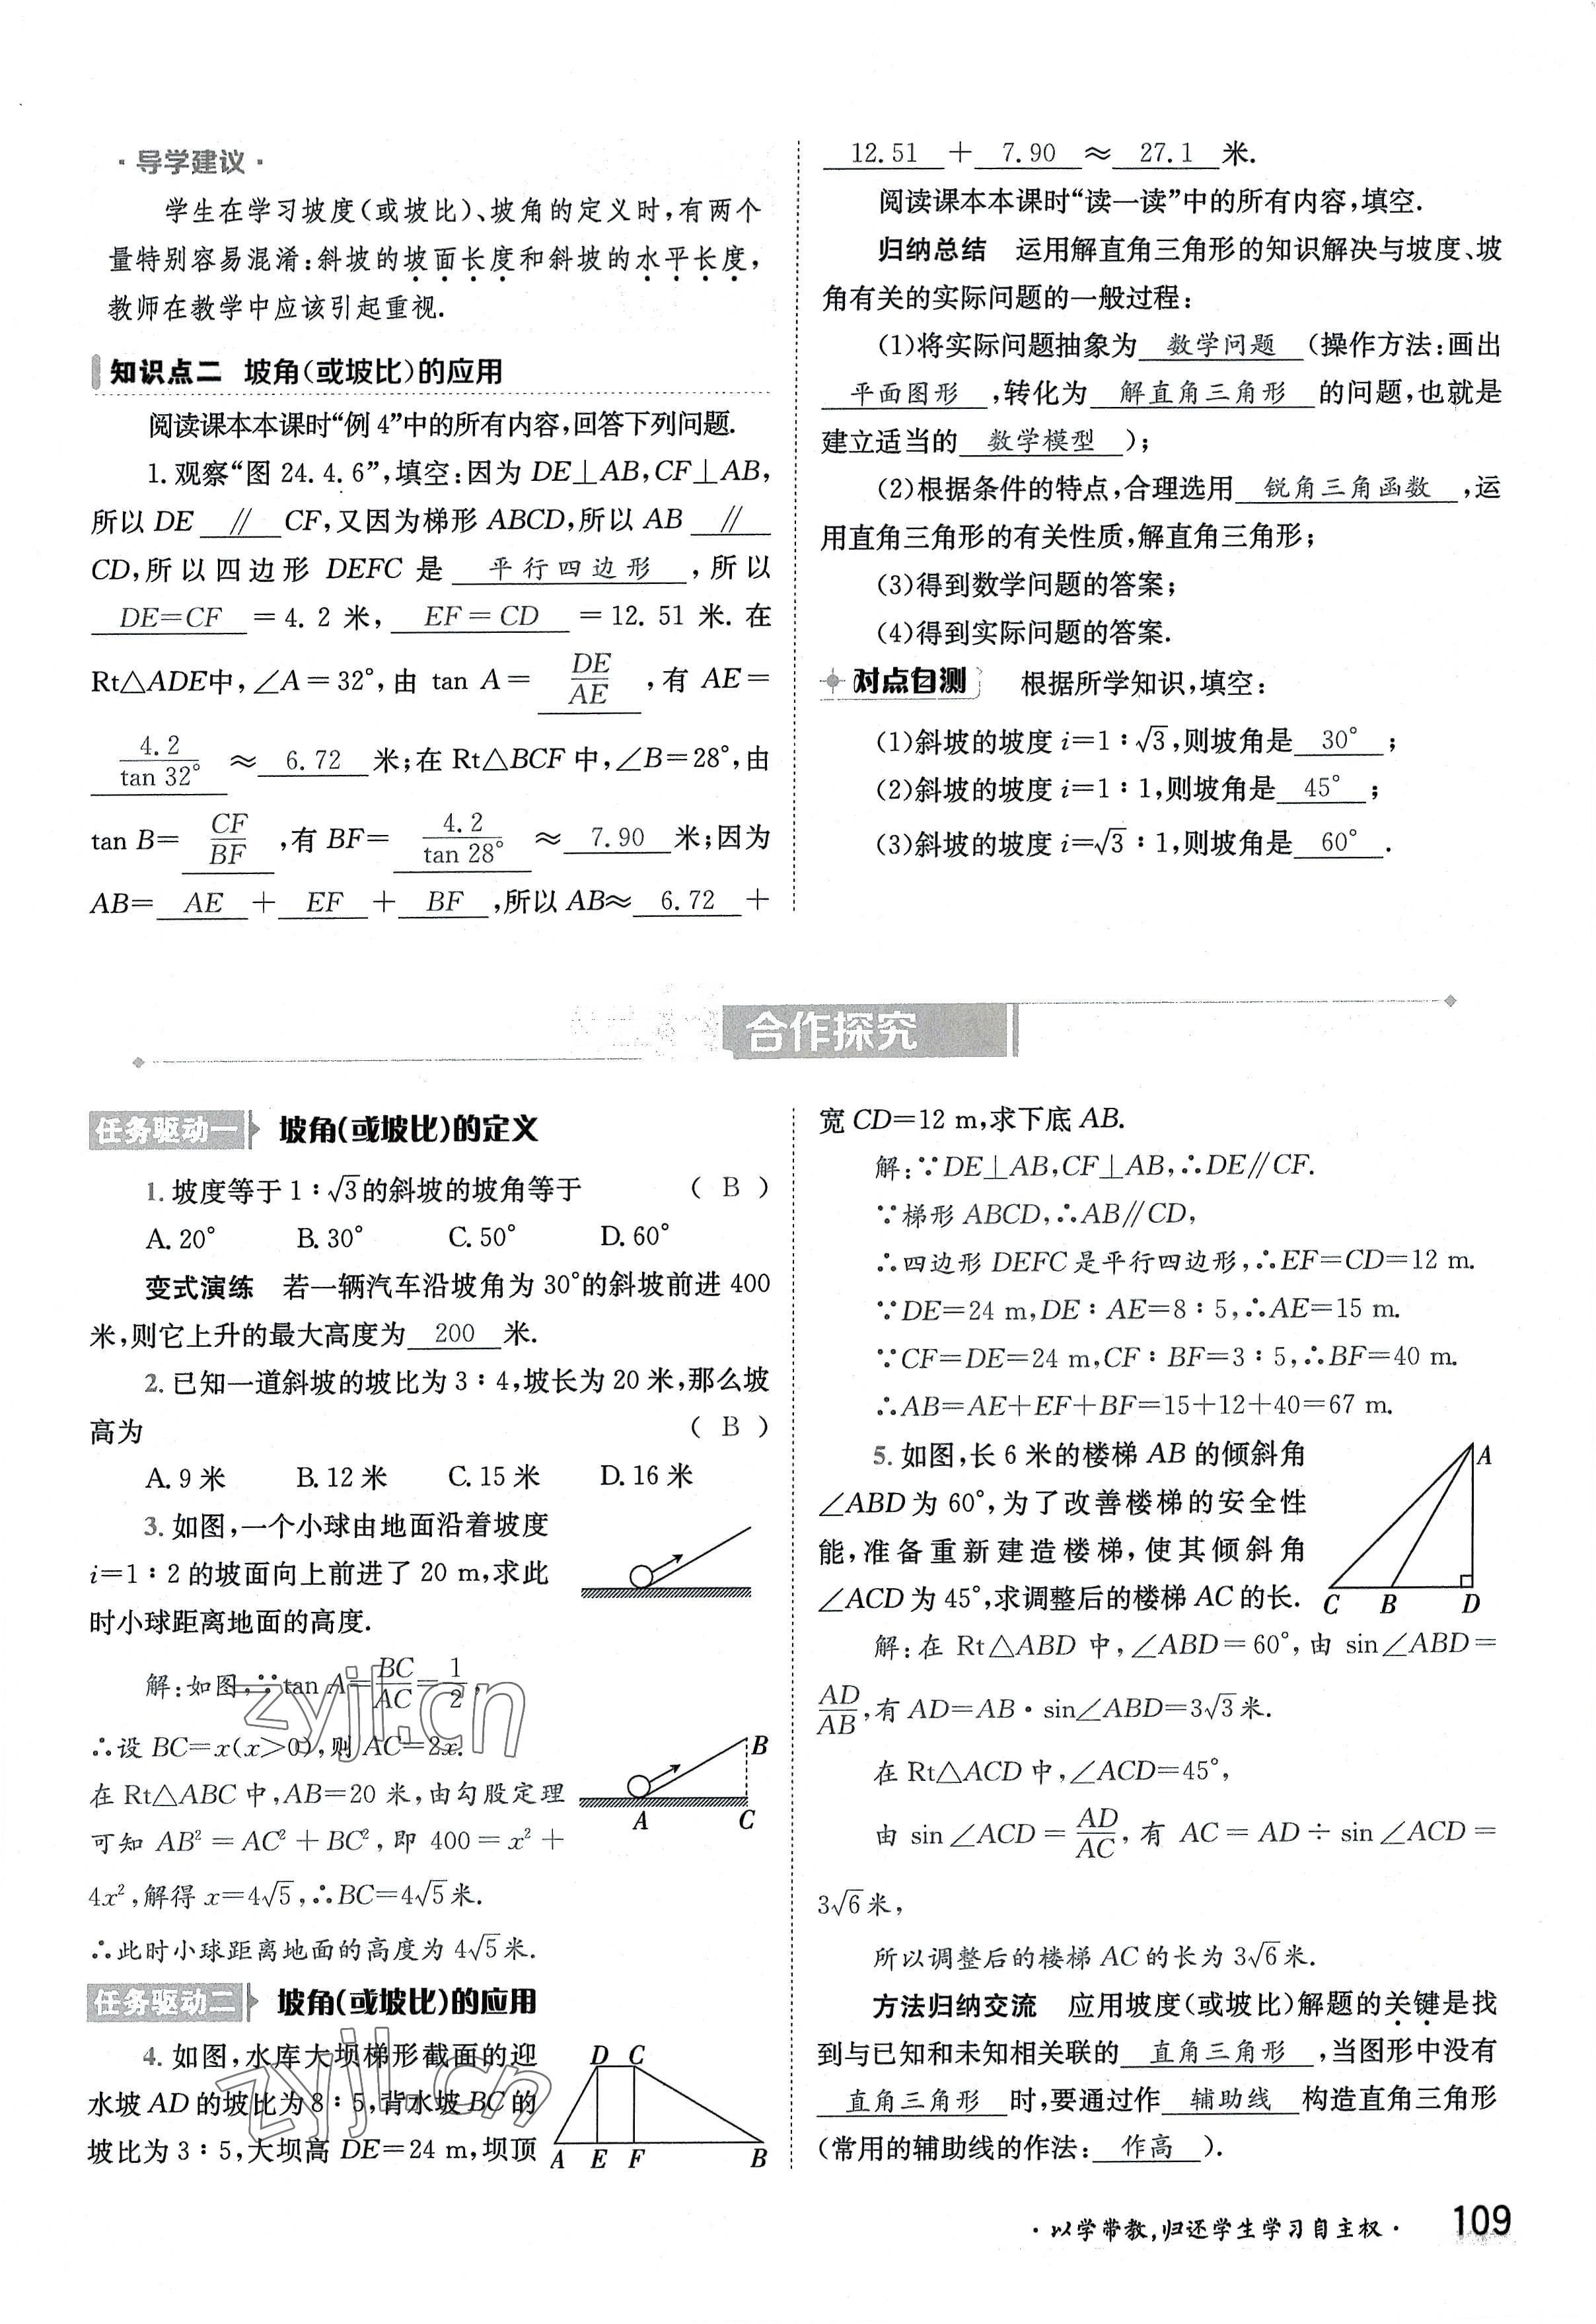 · 导学建议 ·
学生在学习坡度(或坡比)、坡角的定义时,有两个
量特别容易混淆:斜坡的坡面长度和斜坡的水平长度,
教师在教学中应该引起重视.
知识点二 坡角(或坡比)的应用
阅读课本本课时“例 4”中的所有内容,回答下列问题.
1. 观察“图 24. 4. 6”,填空:因为 DE⊥AB,CF⊥AB,
所以 DE ∥ CF,又因为梯形 ABCD,所以 AB ∥
CD,所以四边形 DEFC 是 平行四边形 ,所以
DE=CF =4. 2 米, EF=CD =12. 51 米. 在
Rt△ADE中,∠A=32°,由 tan A= DE/AE ,有 AE=
4.2/tan 32° ≈ 6.72 米;在 Rt△BCF 中,∠B=28°,由
tan B= CF/BF ,有 BF= 4.2/tan 28° ≈ 7.90 米;因为
AB= AE + EF + BF ,所以 AB≈ 6.72 +
12.51 + 7.90 ≈ 27.1 米.
阅读课本本课时“读一读”中的所有内容,填空.
归纳总结 运用解直角三角形的知识解决与坡度、坡
角有关的实际问题的一般过程:
(1)将实际问题抽象为 数学问题 (操作方法:画出
平面图形 ,转化为 解直角三角形 的问题,也就是
建立适当的 数学模型 );
(2)根据条件的特点,合理选用 锐角三角函数 ,运
用直角三角形的有关性质,解直角三角形;
(3)得到数学问题的答案;
(4)得到实际问题的答案.
对点自测 根据所学知识,填空:
(1)斜坡的坡度 i=1∶√3,则坡角是 30° ;
(2)斜坡的坡度 i=1∶1,则坡角是 45° ;
(3)斜坡的坡度 i=√3∶1,则坡角是 60° .
合作探究
任务驱动一 坡角(或坡比)的定义
1. 坡度等于 1∶√3的斜坡的坡角等于 ( B )
A. 20° B. 30° C. 50° D. 60°
变式演练 若一辆汽车沿坡角为 30°的斜坡前进 400
米,则它上升的最大高度为 200 米.
2. 已知一道斜坡的坡比为 3∶4,坡长为 20 米,那么坡
高为 ( B )
A. 9 米 B. 12 米 C. 15 米 D. 16 米
3. 如图,一个小球由地面沿着坡度
i=1∶2 的坡面向上前进了 20 m,求此
时小球距离地面的高度.
解:如图,∵tan A=BC/AC=1/2,
∴设 BC=x(x>0),则 AC=2x.
在 Rt△ABC 中,AB=20 米,由勾股定理
可知 AB²=AC²+BC²,即 400=x²+
4x²,解得 x=4√5,∴BC=4√5米.
∴此时小球距离地面的高度为 4√5米.
B
A C
任务驱动二 坡角(或坡比)的应用
4. 如图,水库大坝梯形截面的迎
水坡 AD 的坡比为 8∶5,背水坡 BC 的
坡比为 3∶5,大坝高 DE=24 m,坝顶
D C
A E F B
宽 CD=12 m,求下底 AB.
解:∵DE⊥AB,CF⊥AB,∴DE∥CF.
∵梯形 ABCD,∴AB∥CD,
∴四边形 DEFC 是平行四边形,∴EF=CD=12 m.
∵DE=24 m,DE∶AE=8∶5,∴AE=15 m.
∵CF=DE=24 m,CF∶BF=3∶5,∴BF=40 m.
∴AB=AE+EF+BF=15+12+40=67 m.
5. 如图,长 6 米的楼梯 AB 的倾斜角
∠ABD 为 60°,为了改善楼梯的安全性
能,准备重新建造楼梯,使其倾斜角
∠ACD 为 45°,求调整后的楼梯 AC 的长.
A
C B D
解:在 Rt△ABD 中,∠ABD=60°,由 sin∠ABD=
AD/AB,有 AD=AB·sin∠ABD=3√3米.
在 Rt△ACD 中,∠ACD=45°,
由 sin∠ACD=AD/AC,有 AC=AD÷sin∠ACD=
3√6米,
所以调整后的楼梯 AC 的长为 3√6米.
方法归纳交流 应用坡度(或坡比)解题的关键是找
到与已知和未知相关联的 直角三角形 ,当图形中没有
直角三角形 时,要通过作 辅助线 构造直角三角形
(常用的辅助线的作法: 作高 ).
zyjl.cn
zyjl.cn
· 以学带教,归还学生学习自主权 · 109